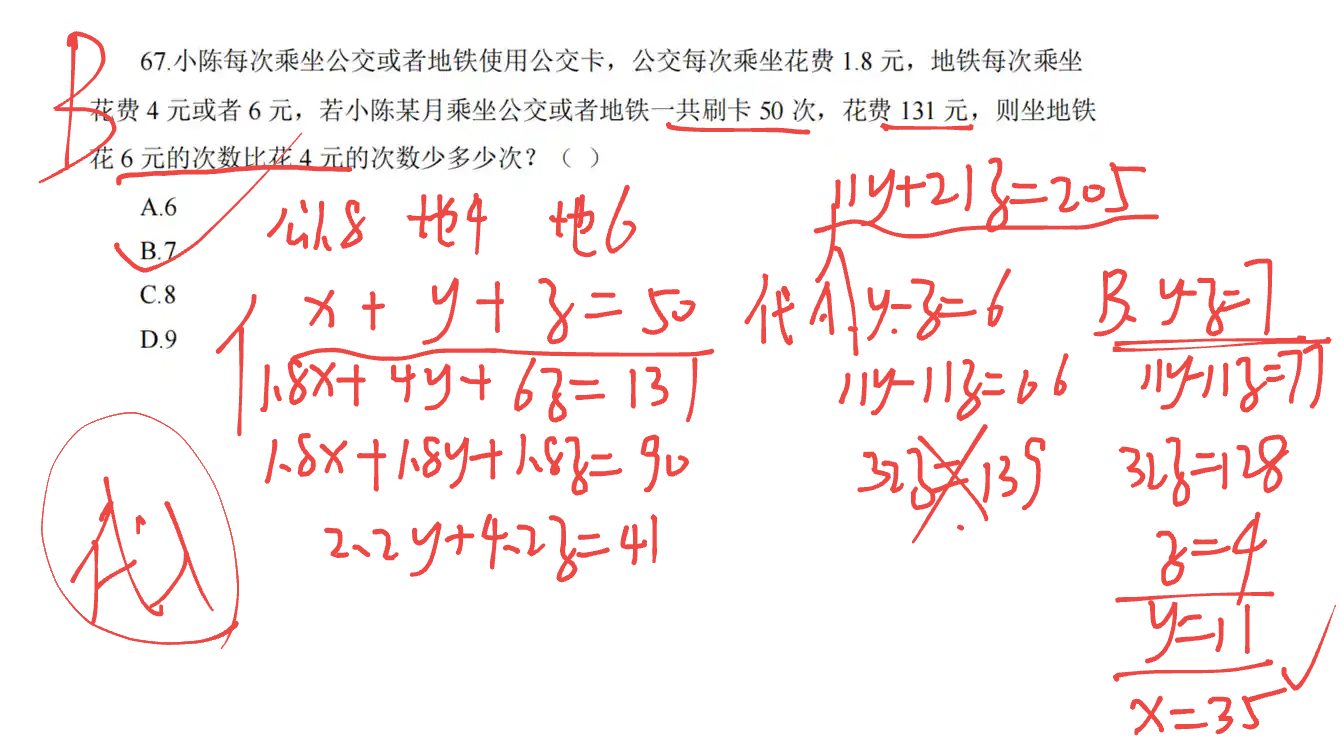 B
67.小陈每次乘坐公交或者地铁使用公交卡，公交每次乘坐花费 1.8 元，地铁每次乘坐
花费 4 元或者 6 元，若小陈某月乘坐公交或者地铁一共刷卡 50 次，花费 131 元，则坐地铁
花 6 元的次数比花 4 元的次数少多少次？（ ）
A.6
B.7
C.8
D.9
公1.8 地4 地6
x + y + z = 50
1.8x + 4y + 6z = 131
1.8x + 1.8y + 1.8z = 90
2.2y + 4.2z = 41
11y + 21z = 205
代 A. y - z = 6
11y - 11z = 66
32z = 139
B. y - z = 7
11y - 11z = 77
32z = 128
z = 4
y = 11
x = 35